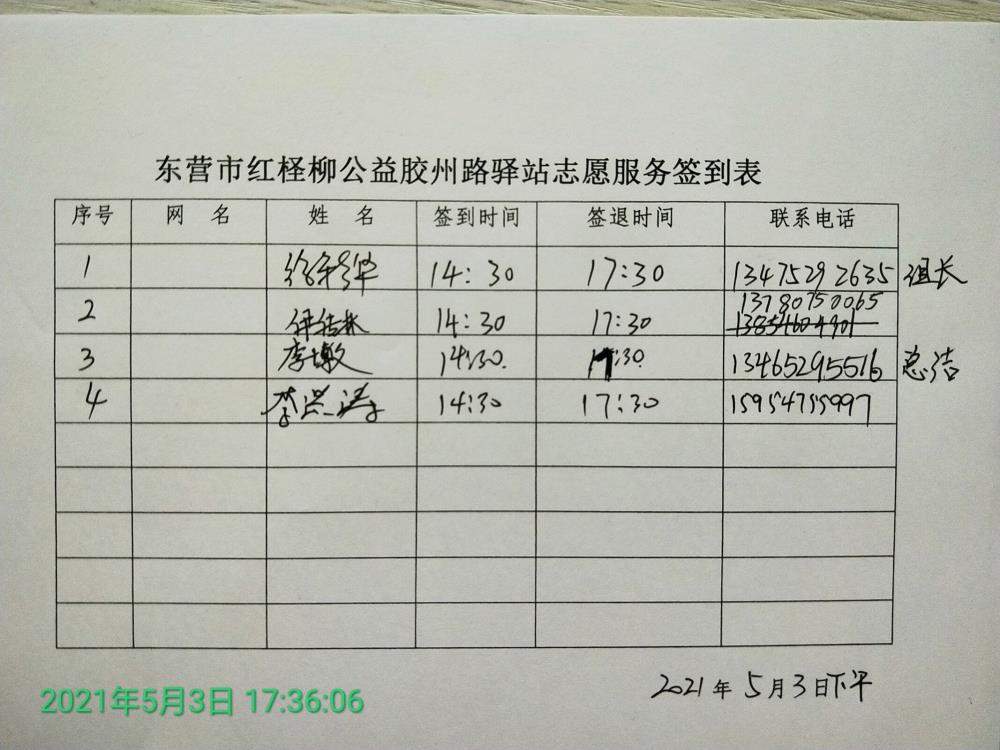 东营市红柽柳公益胶州路驿站志愿服务签到表
序号 网 名 姓 名 签到时间 签退时间 联系电话
1 14:30 17:30 13475292635 组长
13780750065
2 14:30 17:30
3 李墩 14:30. 17:30. 13465295516 总洁
4 李洪涛 14:30 17:30 15954755997
2021年5月3日下午
2021年5月3日 17:36:06